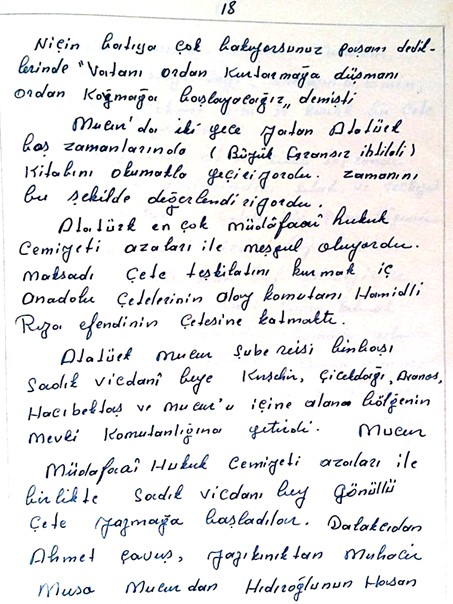 18
Niçin batıya çok bakıyorsunuz paşam dedik-
lerinde "Vatanı ordan Kurtarmağa düşmanı
ordan Koğmağa başlayacağız„ demişti
Mucur'da iki gece yatan Atatürk
boş zamanlarında ( Büyük Fransız ihtilali )
Kitabını okumakla geçiriyordu. zamanını
bu şekilde değerlendiriyordu.
Atatürk en çok müdâfaaî hukuk
Cemiyeti azaları ile meşgul oluyordu.
maksadı Çete teşkilatını kurmak iç
Anadolu Çetelerinin Alay komutanı Hamidli
Rıza efendinin Çetesine katmaktı.
Atatürk Mucur Şube reisi binbaşı
Sadık vicdanî beye Kırşehir, Çiçekdağı, Avanos,
Hacıbektaş ve Mucur'u içine alan bölgenin
mevki Komutanlığına getirdi. Mucur
Müdafaaî Hukuk Cemiyeti azaları ile
birlikte Sadık vicdanı bey Gönüllü
Çete yazmağa başladılar. Dalakcıdan
Ahmet çavuş, yazıkınıktan Muhacir
Musa Mucurdan Hıdıroğlunun Hasan